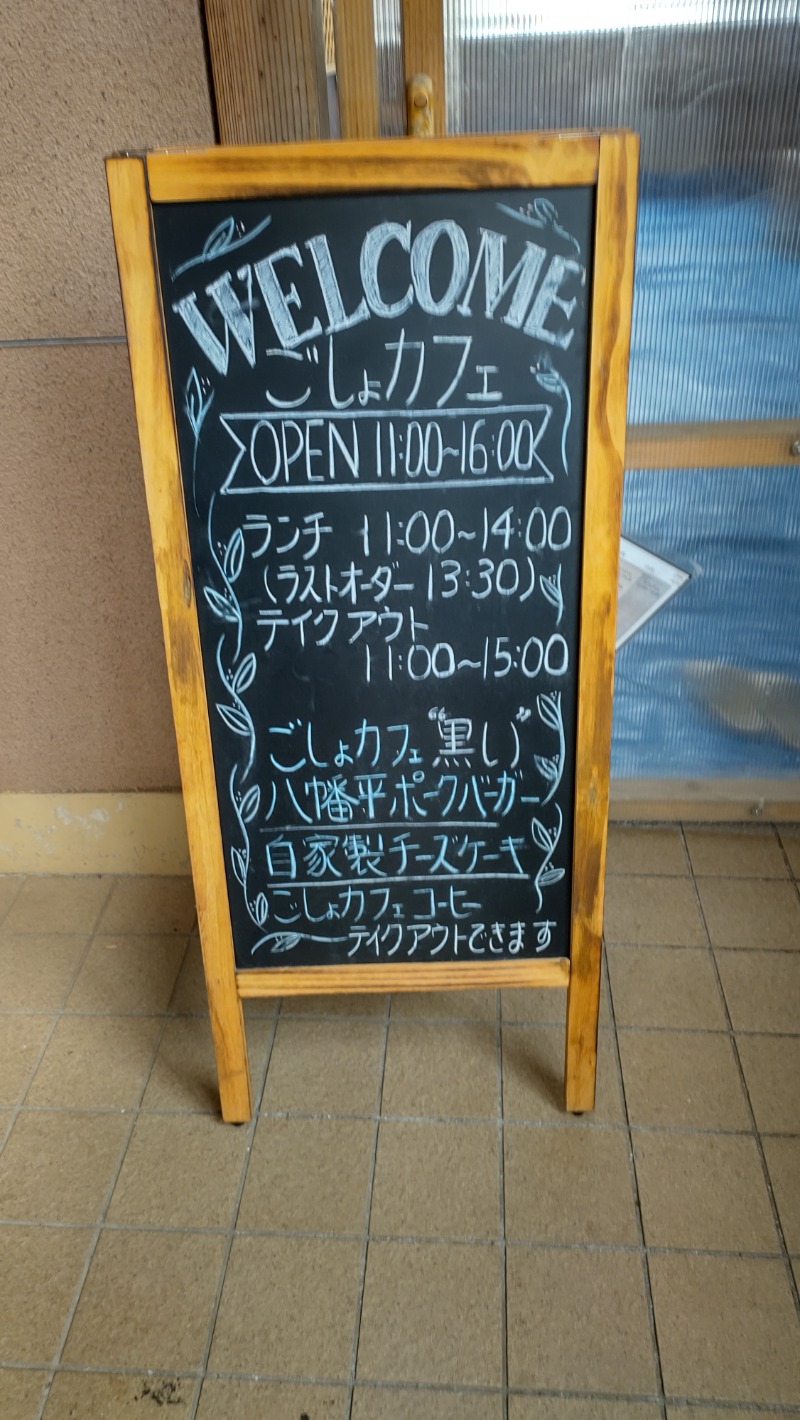 WELCOME
ごしょカフェ
OPEN 11:00~16:00
ランチ 11:00~14:00
(ラストオーダー 13:30)
テイクアウト
11:00~15:00
ごしょカフェ“黒い”
八幡平ポークバーガー
自家製チーズケーキ
ごしょカフェコーヒー
テイクアウトできます